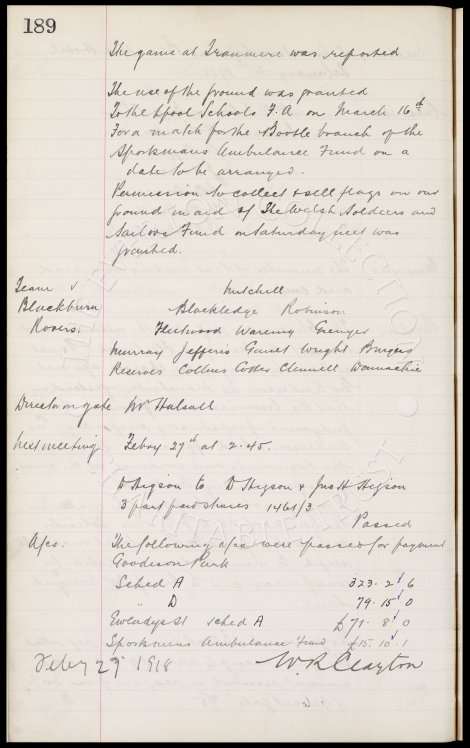 189
The game at Tranmere was reported
The use of the ground was granted
To the Lpool Schools F.A on March 16th
For a match for the Bootle branch of the
Sportsmans Ambulance Fund on a
date to be arranged.
Permission to collect & sell flags on our
ground in aid of The Welsh Soldiers and
Sailors Fund on Saturday next was
granted.
Team v Mitchell
Blackburn Blackledge Robinson
Rovers. Fleetwood Wareing Grenyer
Murray Jefferis Gault Wright Burgess
Reserves Collins Cotter Clennell
Director on gate Mr Halsall
Next meeting Febry 27th at 2.45.
D Higson to D Higson & Jno H Higson
3 part paid shares 1461/3
Passed
A/cs. The following a/cs were passed for payment
Goodison Park
Sched A 323. 2. 6
" D 79. 15. 0
Gwladys St Sched A £71. 8. 0
Sportsmans Ambulance Fund £15. 10. 1
Feby 27 1918 W.R. Clayton